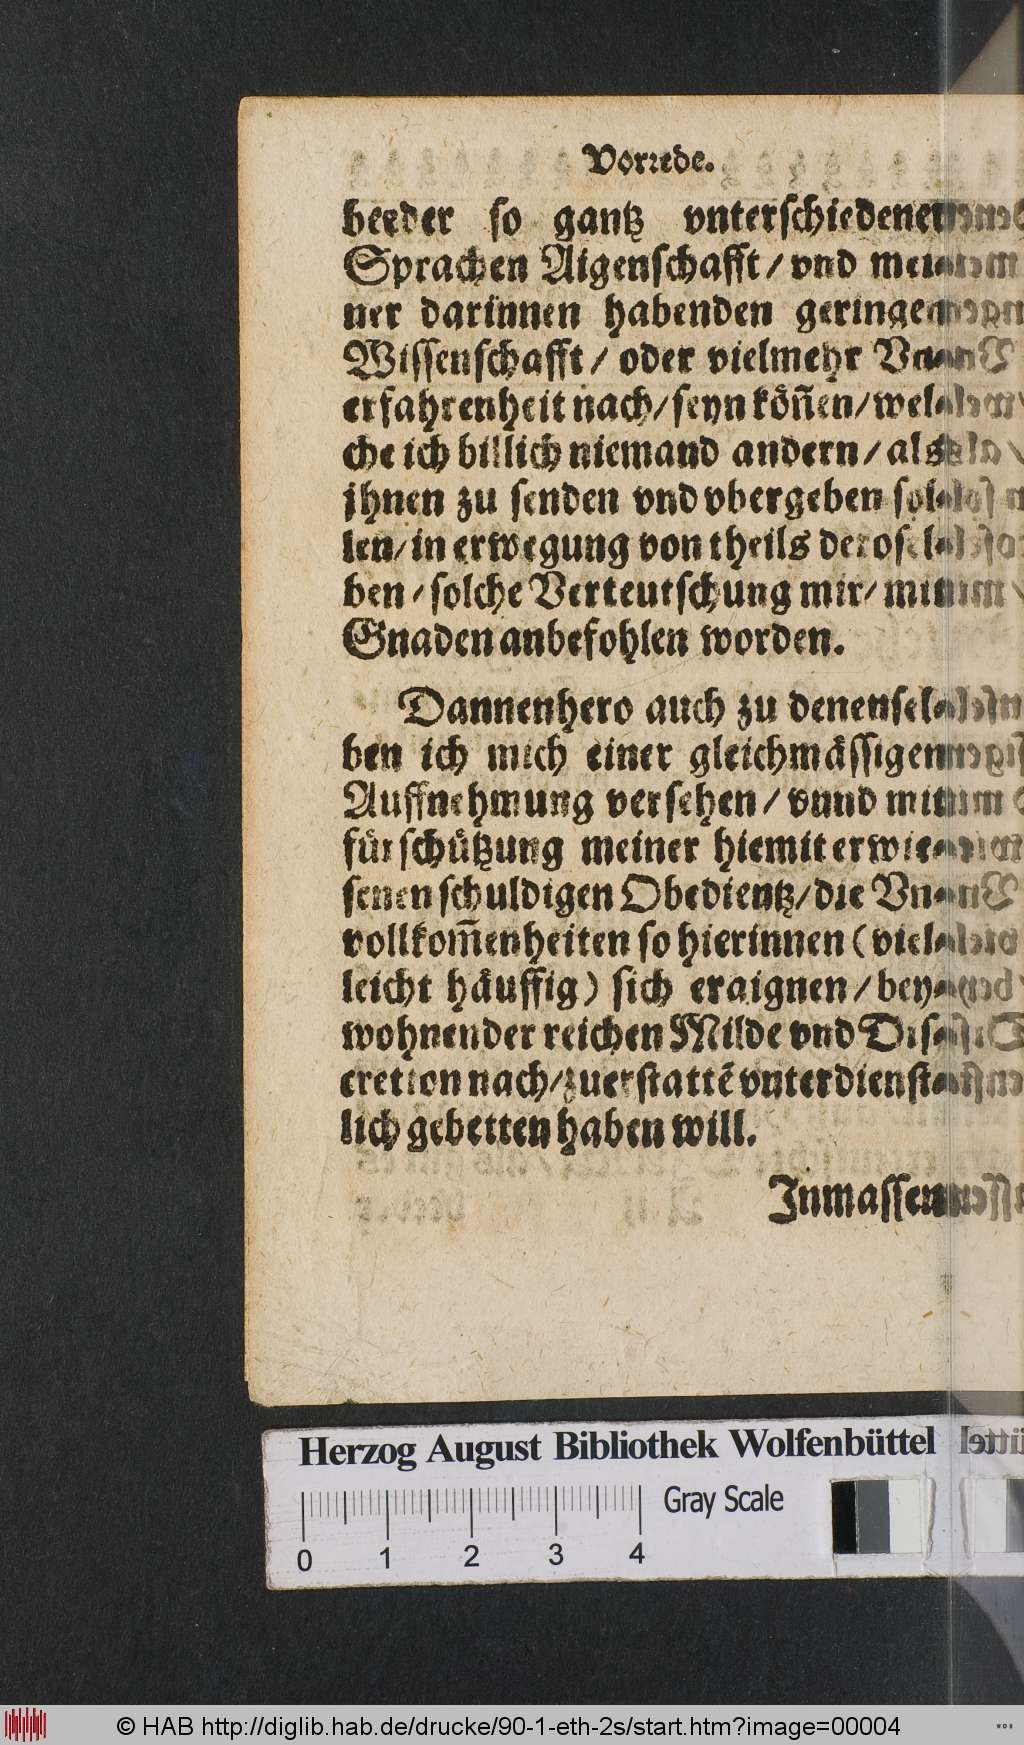 Vorrede.
beeder so gantz vnterschiedenen
Sprachen Aigenschafft/ vnd mei-
ner darinnen habenden geringen
Wissenschafft/ oder vielmehr Vn-
erfahrenheit nach/ seyn köñen/ wel-
che ich billich niemand andern/ als
jhnen zu senden vnd vbergeben sol-
len/ in erwegung von theils derosel-
ben/ solche Verteutschung mir/ mit
Gnaden anbefohlen worden.
Dannenhero auch zu denensel-
ben ich mich einer gleichmässigen
Auffnehmung versehen/ vnnd mit
fürschützung meiner hiemit erwie-
senen schuldigen Obedientz/ die Vn-
vollkom̃enheiten so hierinnen (viel-
leicht häuffig) sich eraignen/ bey-
wohnender reichen Milde vnd Dis-
cretion nach/ zuerstattẽ vnterdienst-
lich gebetten haben will.
Inmassen
Herzog August Bibliothek Wolfenbüttel
Gray Scale
0 1 2 3 4
© HAB http://diglib.hab.de/drucke/90-1-eth-2s/start.htm?image=00004